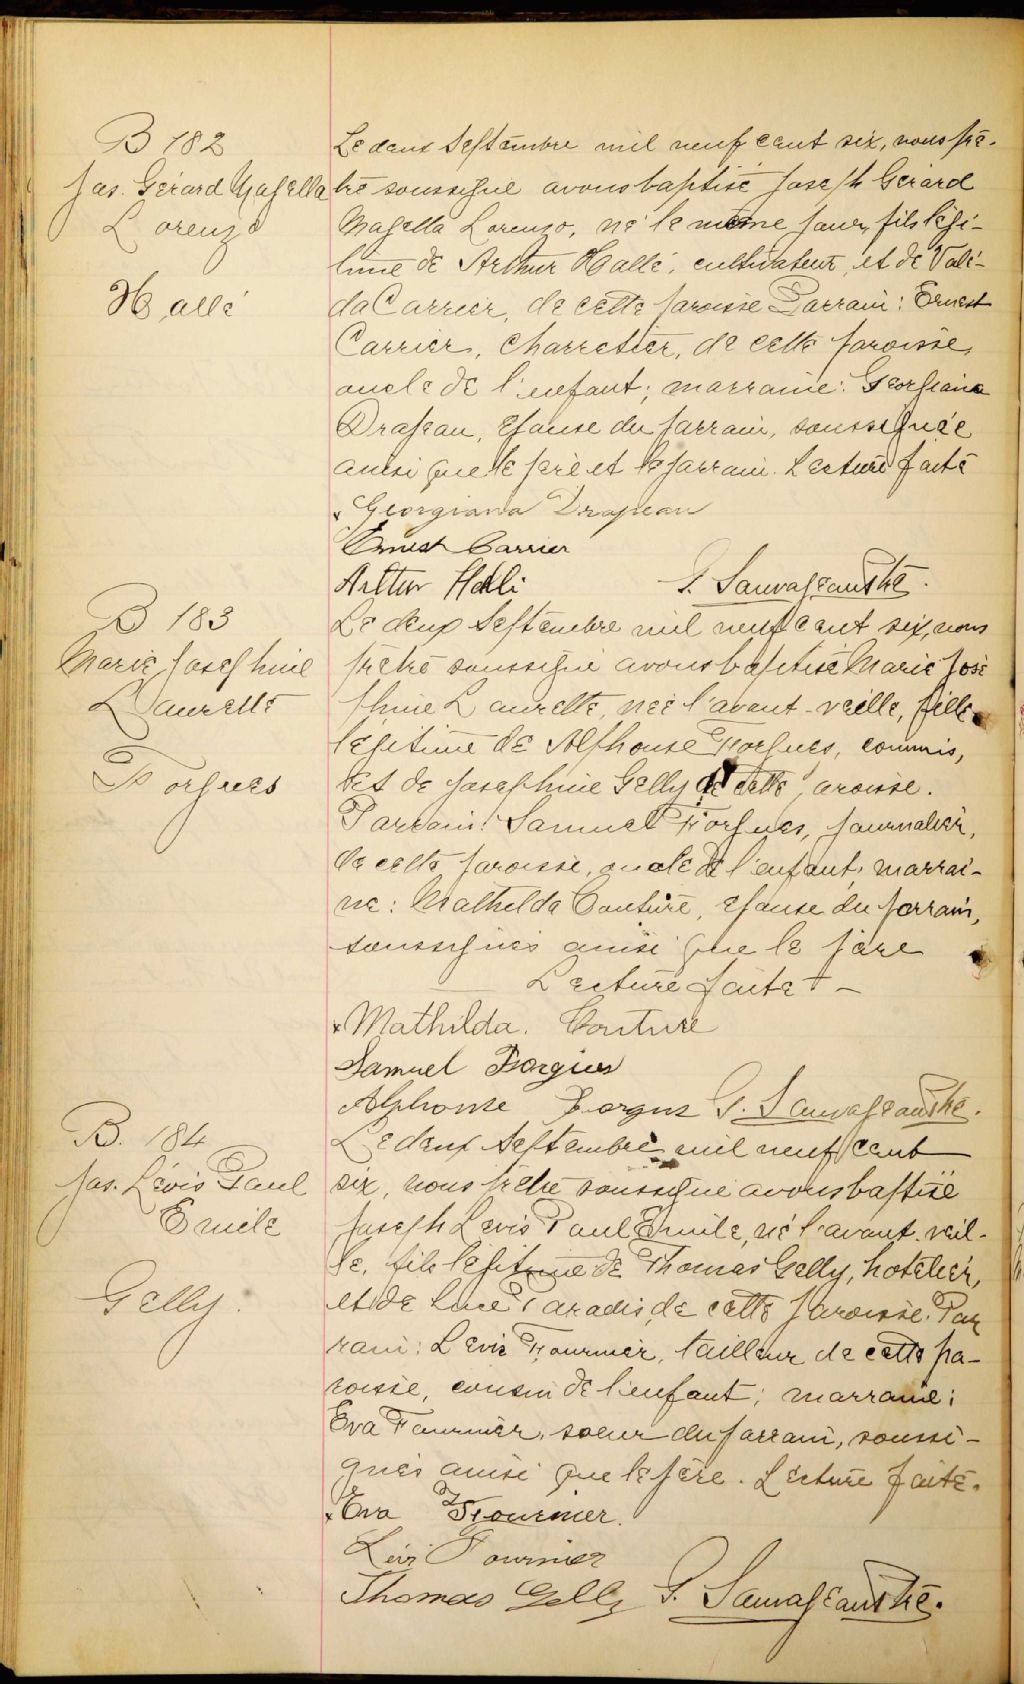 B 182
Jos. Gérard Magella
Lorenzo
Hallé
Le deux Septembre mil neuf cent six, nous prê-
tre soussigné avons baptisé Joseph Gérard
Magella Lorenzo, né le même jour, fils légi-
time de Arthur Hallé, cultivateur, et de Valé-
da Carrier, de cette paroisse Parrain: Ernest
Carrier, charretier, de cette paroisse,
oncle de l'enfant; marraine: Georgiana
Drapeau, épouse du parrain, soussignée
ainsi que le père et le parrain. Lecture faite
x Georgiana Drapeau
Ernest Carrier
Arthur Hallé
G. Sauvageau Ptre.
B 183
Marie Josephine
Laurette
Forgues
Le deux Septembre mil neuf cent six, nous
prêtre soussigné avons baptisé Marie José
phine Laurette, née l'avant-veille, fille
légitime de Alphonse Forgues, commis,
et de Josephine Gelly de cette paroisse.
Parrain: Samuel Forgues, journalier,
de cette paroisse, oncle de l'enfant, marrai-
ne: Mathilda Couture, épouse du parrain,
soussignés ainsi que le père
Lecture faite -
x Mathilda. Couture
Samuel Forgues
Alphonse Forgues G. Sauvageau Ptre.
B. 184
Jos. Lévis Paul
Emile
Gelly.
Le deux Septembre mil neuf cent
six, nous prêtre soussigné avons baptisé
Joseph Levis Paul Emile, né l'avant-veil-
le, fils légitime de Thomas Gelly, hotelier,
et de Luce Paradis, de cette paroisse. Par
rain: Levis Fournier, tailleur de cette pa-
roisse, cousin de l'enfant; marraine:
Eva Fournier, soeur du parrain, soussi-
gnés ainsi que le père. Lecture faite.
x Eva Fournier.
Levi Fournier
Thomas Gelly G. Sauvageau Ptre.